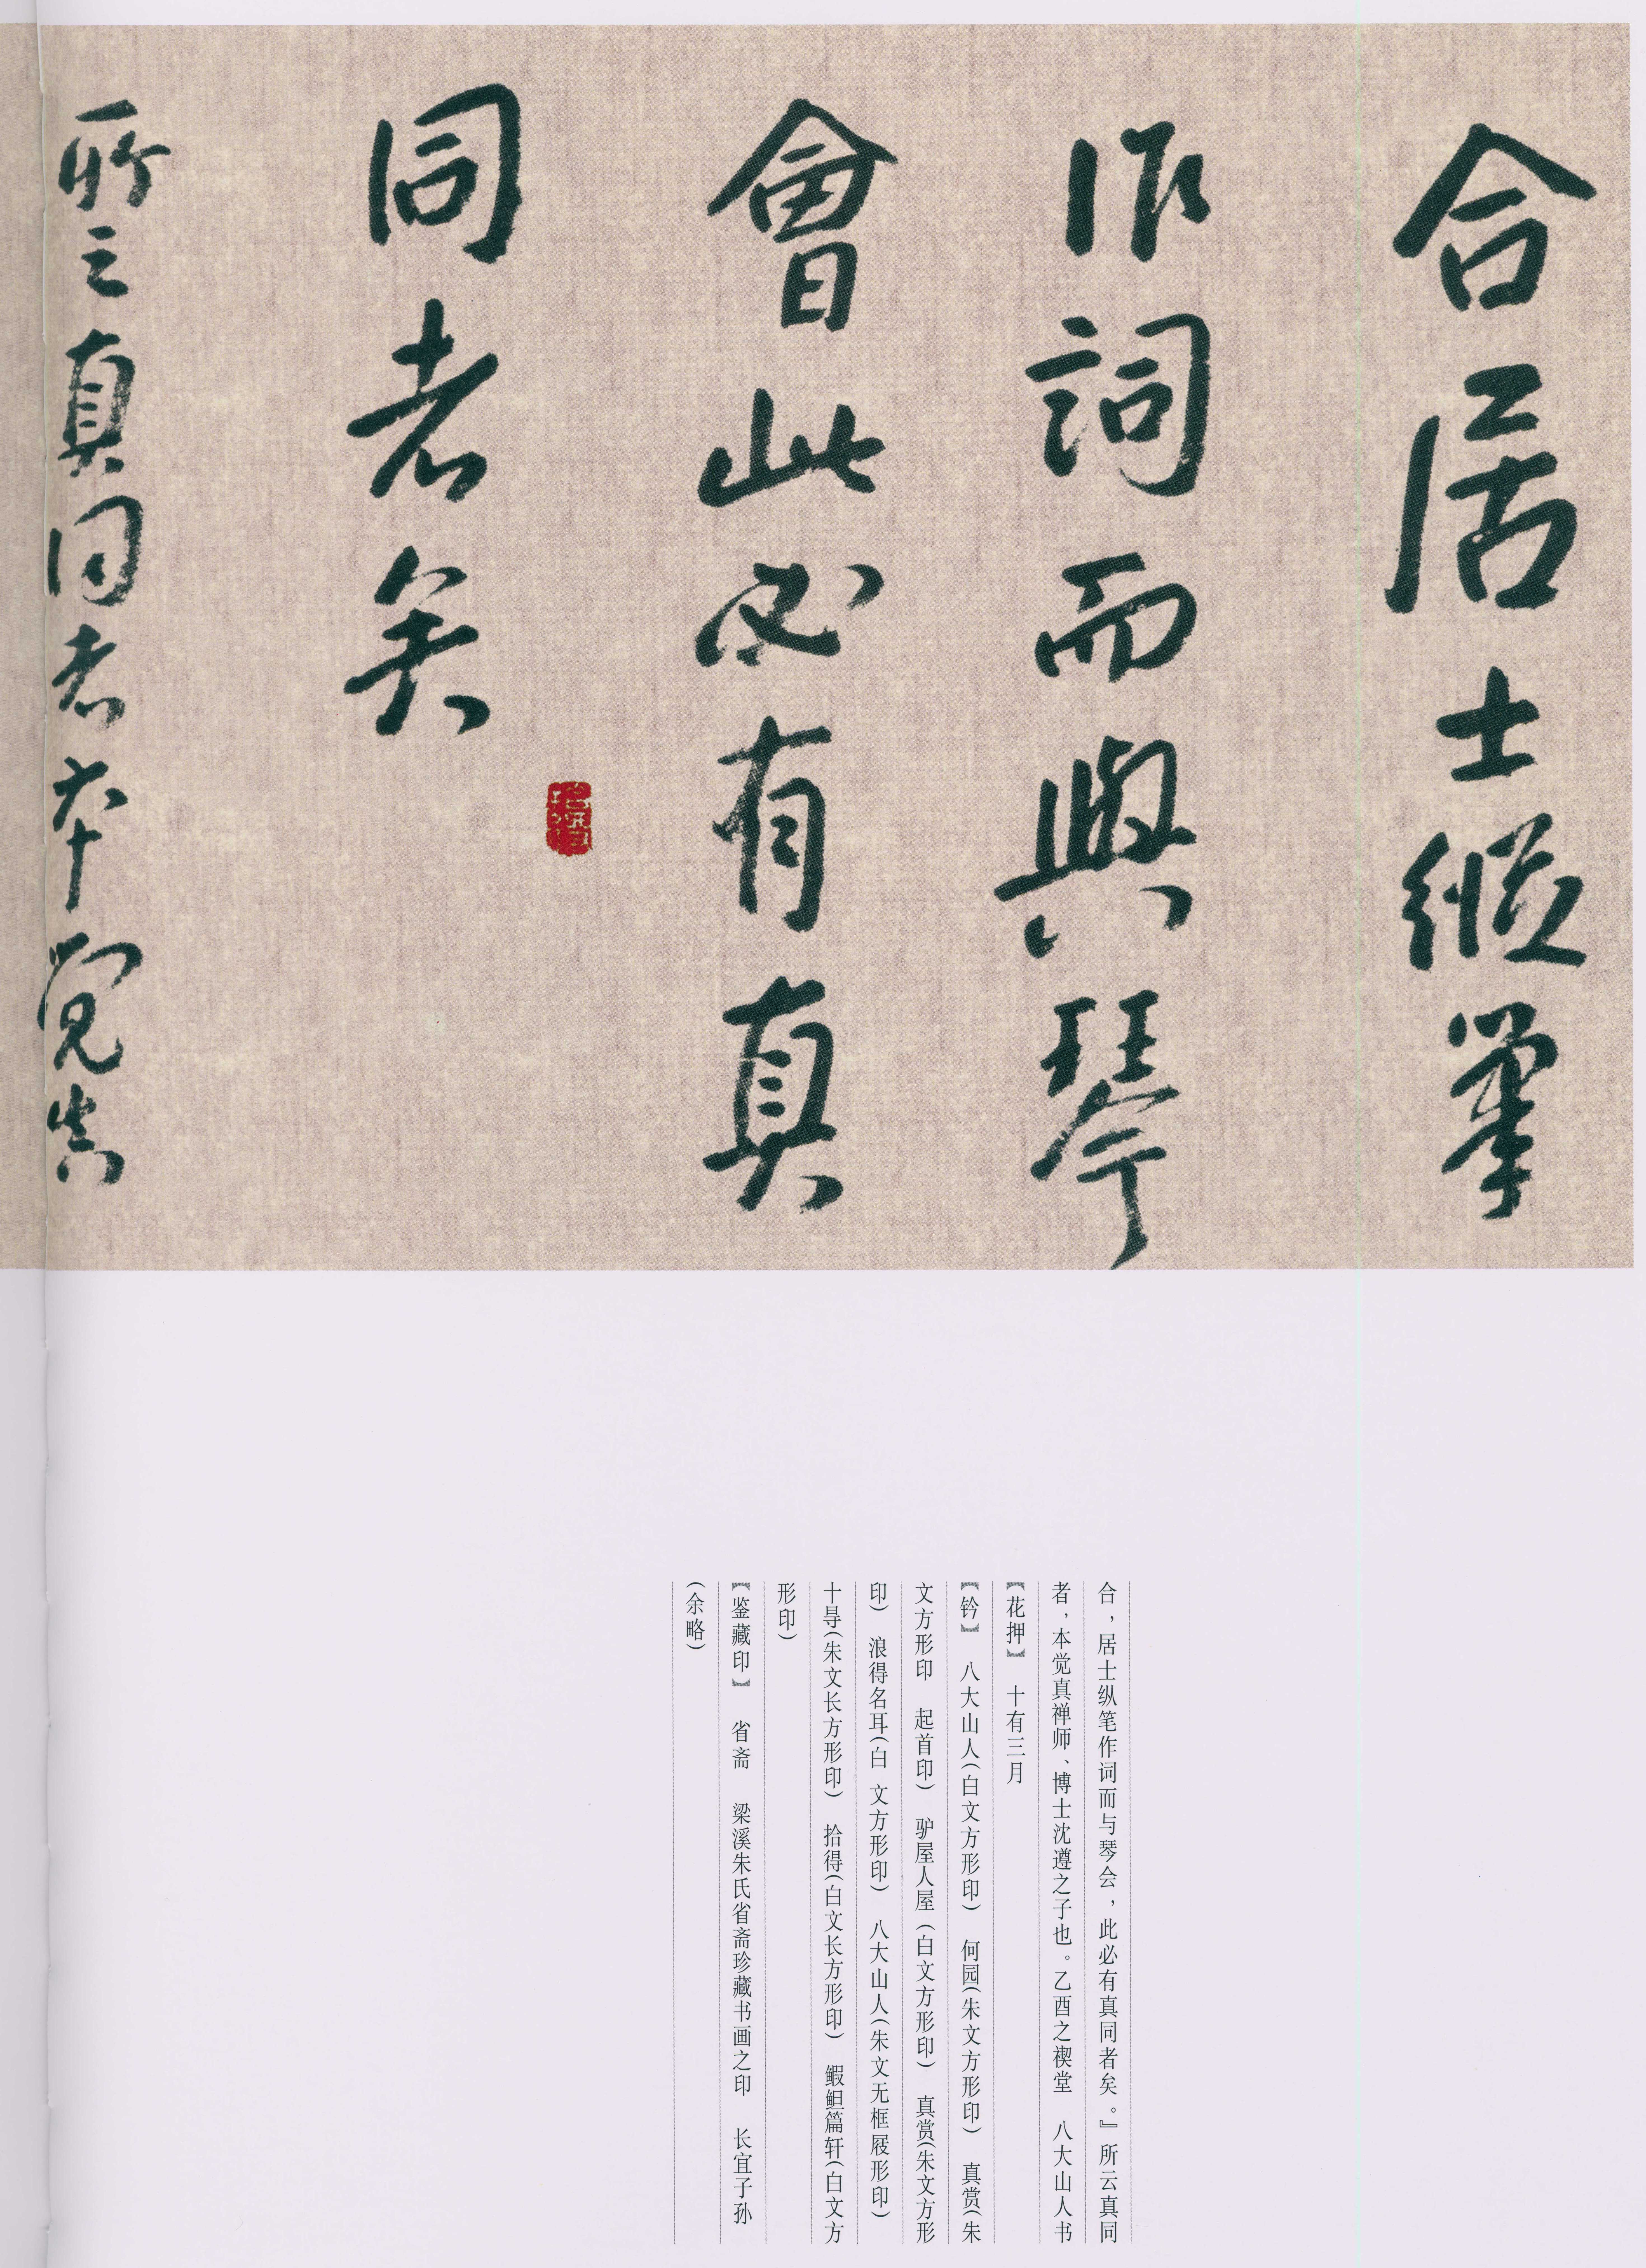 合居士縱筆
作詞而與琴
會此必有真
同者矣
所云真同者本覺真
合，居士纵笔作词而与琴会，此必有真同者矣。』所云真同
者，本觉真禅师、博士沈遵之子也。乙酉之禊堂 八大山人书
【花押】 十有三月
【钤】 八大山人（白文方形印） 何园（朱文方形印） 真赏（朱
文方形印 起首印） 驴屋人屋（白文方形印） 真赏（朱文方形
印） 浪得名耳（白 文方形印） 八大山人（朱文无框屐形印）
十㝵（朱文长方形印） 拾得（白文长方形印） 鰕䱇篇轩（白文方
形印）
【鉴藏印】 省斋 梁溪朱氏省斋珍藏书画之印 长宜子孙
（余略）